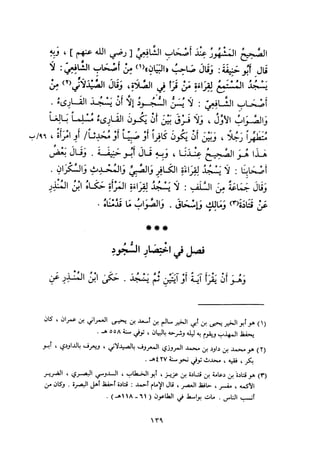 الصحيح المشهور عند أصحاب الشافعي [ رضي الله عنهم ] ، وبه
قال أبو حنيفة : وقال صاحب «البيان» (١) من أصحاب الشافعي : لا
يسجد المستمع لقراءة من قرأ في الصلاة ، وقال الصيدلاني (٢) من
أصحاب الشافعي : لا يُسَنُّ السجود إلا أن يسجد القارىء .
والصواب الأول ، ولا فرق بين أن يكون القارىء مسلماً بالغاً
متطهراً رجلاً ، وبين أن يكون كافراً أو صبياً أو محدثاً / أو امرأة ، / ٩٦ ب
هذا هو الصحيح عندنا ، وبه قال أبو حنيفة . وقال بعض
أصحابنا : لا يسجد لقراءة الكافر والصبي والمحدث والسكران .
وقال جماعة من السلف : لا يسجد لقراءة المرأة حكاه ابن المنذر
عن قتادة (٣) ومالك وإسحاق . والصواب ما قدمناه .
***
فصل في اختصار السجود
وهو أن يقرأ آية أو آيتين ثم يسجد . حكى ابن المنذر عن
(١) هو أبو الخير يحيى بن أبي الخير سالم بن أسعد بن يحيى العمراني من عمران ، كان
يحفظ المهذب ويقوم به ليله وشرحه بالبيان ، توفي سنة ٥٥٨ هـ .
(٢) هو محمد بن داود بن محمد المروزي المعروف بالصيدلاني ، ويعرف بالداودي ، أبو
بكر ، فقيه ، محدث ، توفي نحو سنة ٤٢٧ هـ .
(٣) هو قتادة بن دعامة بن قتادة بن عزيز ، أبو الخطاب ، السدوسي البصري ، الضرير
الأكمه ، مفسر ، حافظ العصر ، قال الإمام أحمد : قتادة أحفظ أهل البصرة . وكان من
أنسب الناس . مات بواسط في الطاعون (٦١ - ١١٨ هـ) .
١٣٩